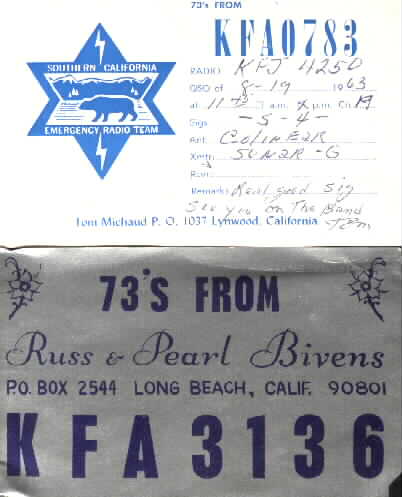 73's FROM
KFA0783
SOUTHERN CALIFORNIA
EMERGENCY RADIO TEAM
RADIO KFJ 4250
QSO of 8-19 1963
at 11 a.m. p.m. Cn 19
Sigs -5-4-
Ant. COLINEAR
Xmtr. SONAR-G
Rcvr.
Remarks Real good Sig
See you on The Band
Tom
Tom Michaud P. O. 1037 Lynwood, California
73's FROM
Russ & Pearl Bivens
P.O. BOX 2544 LONG BEACH, CALIF. 90801
KFA3136